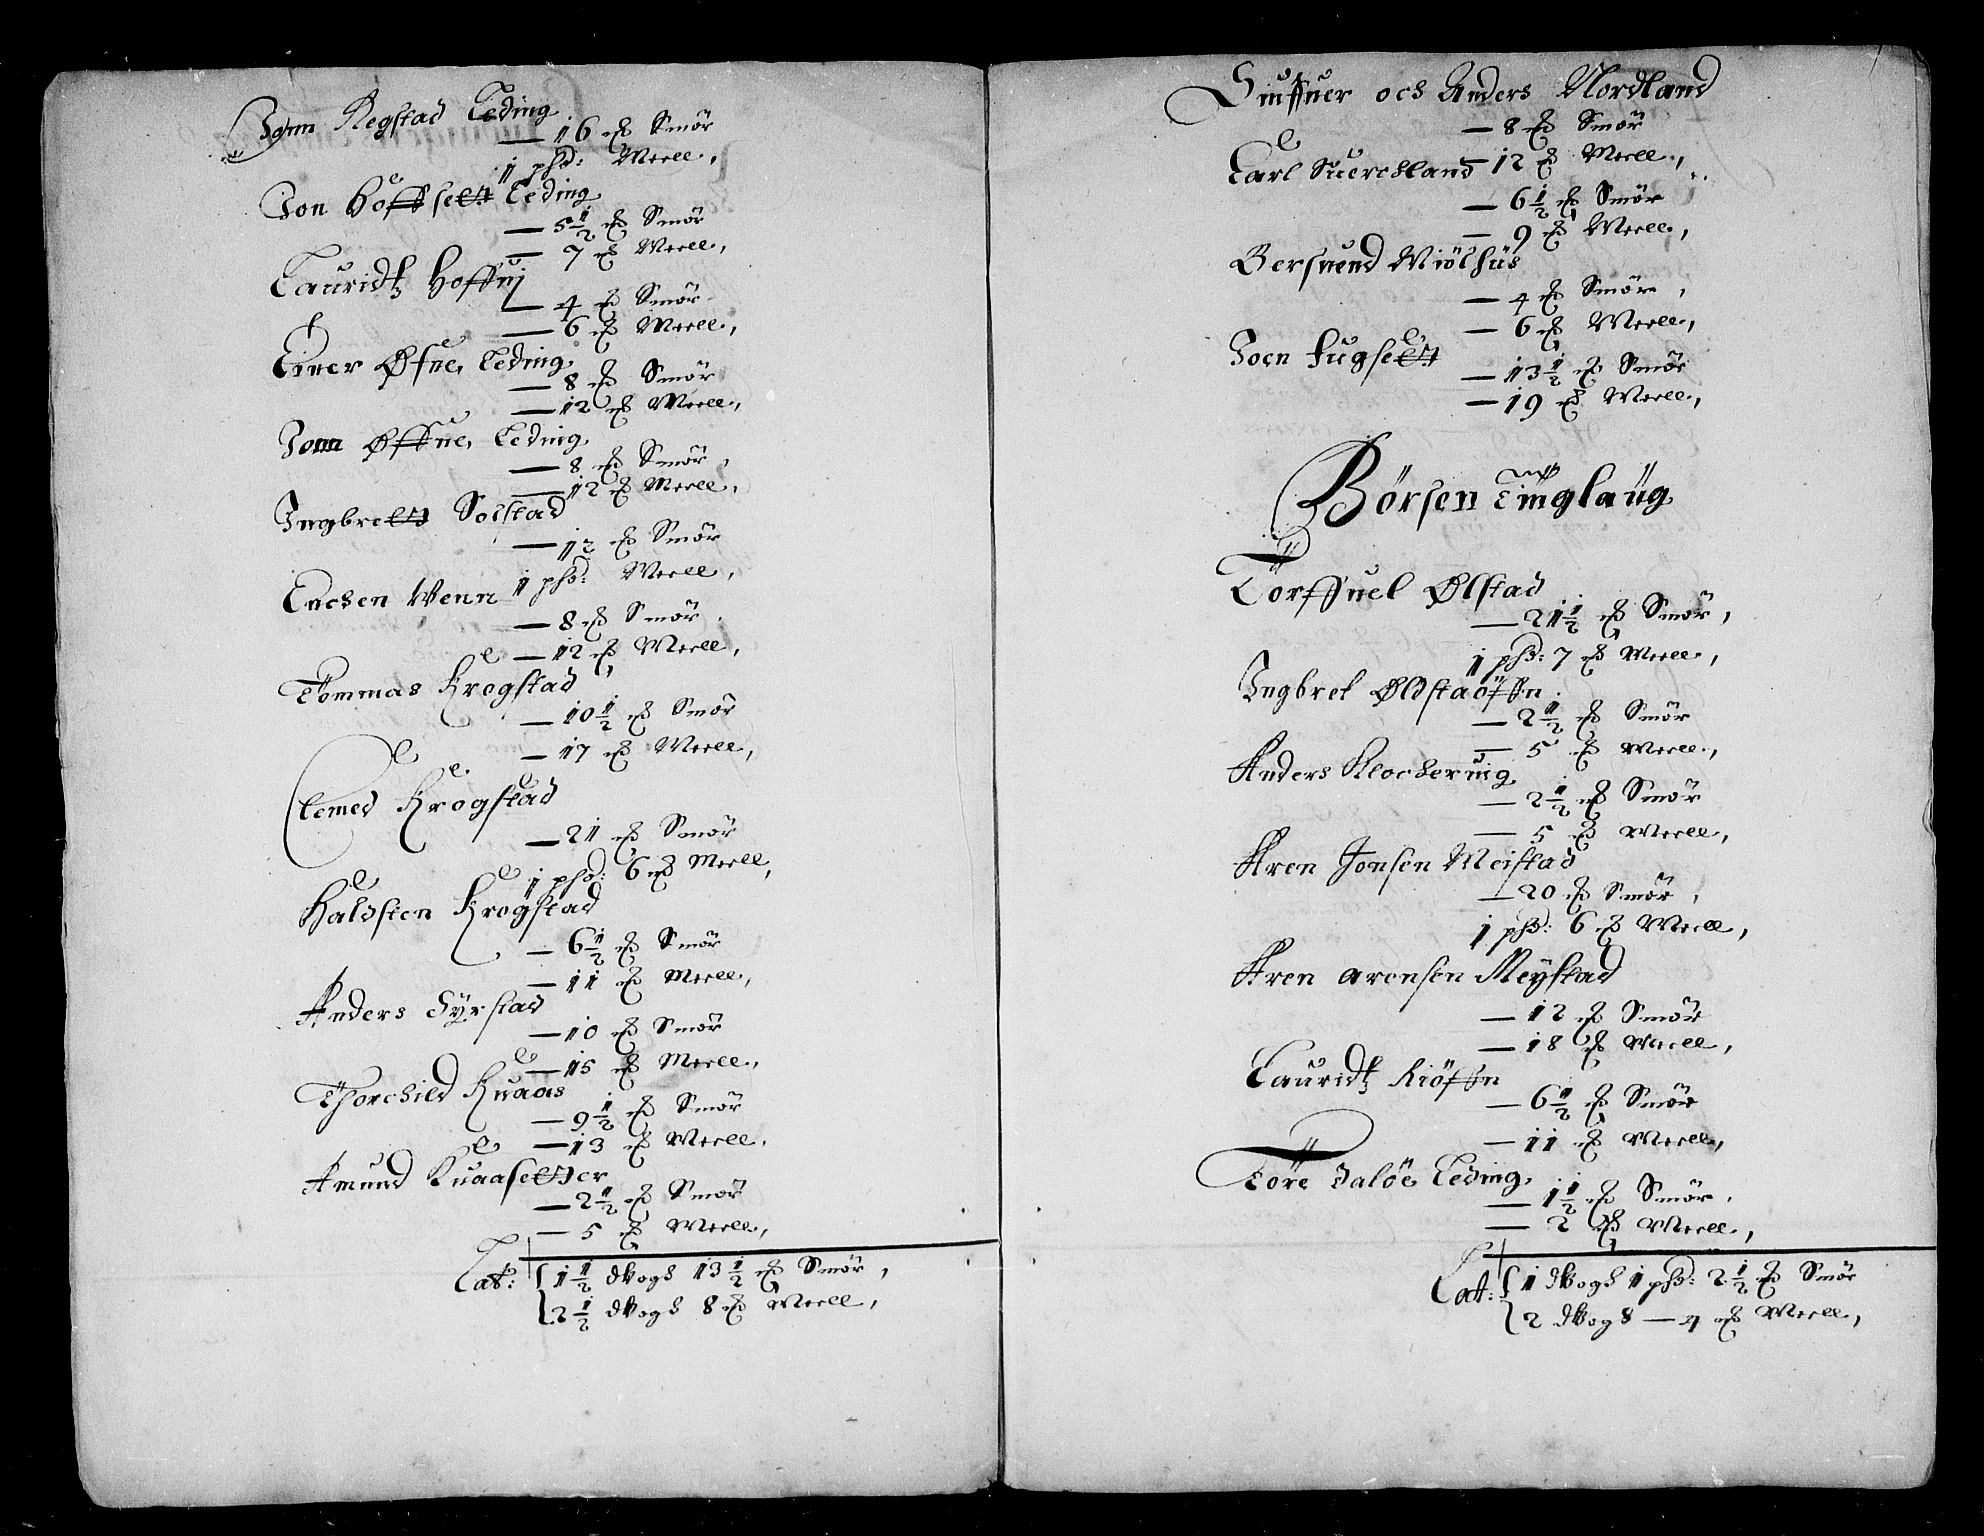 Joen Regstad Leding
— 16 ℔ Smör
1 phd: Meell,
Jon Hoffsett Leding
— 5½ ℔ Smör
— 7 ℔ Meell,
Lauridtz Hoffuj
— 4 ℔ Smör
— 6 ℔ Meell,
Einer Øfne, Leding
— 8 ℔ Smör
— 12 ℔ Meell,
Jonn Øffne, Leding
— 8 ℔ Smör,
— 12 ℔ Meell,
Ingbrett Solstad
— 12 ℔ Smör
1 phd: Meell,
Enchen Wenn
— 8 ℔ Smör,
— 12 ℔ Meell,
Tommas Krogstad
— 10½ ℔ Smör
— 17 ℔ Meell,
Clemed Krogstad
— 21 ℔ Smör
1 phd: 6 ℔ Meell,
Haldsten Krogstad
— 6½ ℔ Smör
— 11 ℔ Meell,
Anders Syrstad
— 10 ℔ Smör
— 15 ℔ Meell,
Thorchild Kuaas
— 9½ ℔ Smör
— 13 ℔ Meell,
Amund Kuaasetter
— 2½ ℔ Smör
— 5 ℔ Meell,
Lat: 1½ dWogs 13½ ℔ Smör,
2½ dWogs 8 ℔ Meell,
Siuffuer och Anders Nordland
— 8 ℔ Smör
— 12 ℔ Meell,
Carl Suerchland
— 6½ ℔ Smör
— 9 ℔ Meell,
Bersuend Miölhüs
— 4 ℔ Smör,
— 6 ℔ Meell,
Joen fugsett
— 13½ ℔ Smör
— 19 ℔ Meell,
Börsen Tinglaüg
Torffuel Ølstad
— 21½ ℔ Smör,
1 phd: 7 ℔ Meell,
Ingbret Øldstadöffn.
— 2½ ℔ Smör
— 5 ℔ Meell,
Anders Klocheruig
— 2½ ℔ Smör
— 5 ℔ Meell,
Aren Jonsen Meistad
— 20 ℔ Smör,
1 phd: 6 ℔ Meell,
Aren arensen Meystad
— 12 ℔ Smör
— 18 ℔ Meell,
Lauridtz Kiöffn
— 6½ ℔ Smör
— 11 ℔ Meell,
Tore Dalöe Leding,
— 1½ ℔ Smör,
— 2 ℔ Meell,
Lat: 1 dWogs 1 phd: 2½ ℔ Smör
2 dWogs — 4 ℔ Meell,